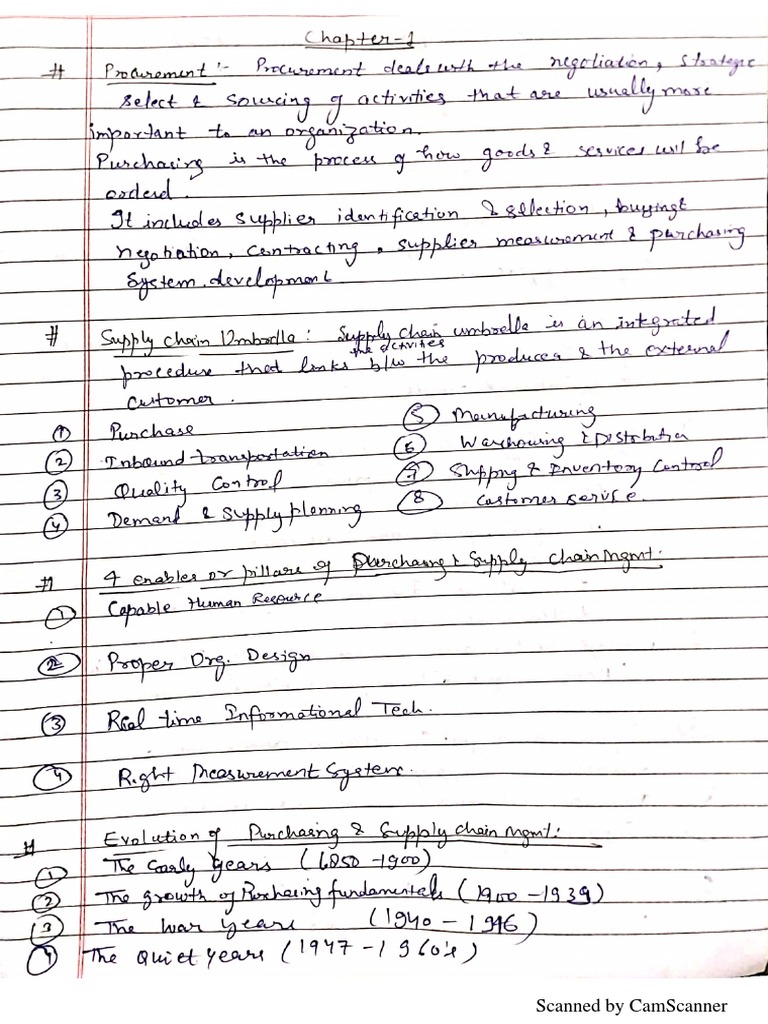 Chapter-1
# Procurement :- Procurement deals with the negoliation, strategic
select & sourcing of activities that are usually more
important to an organization.
Purchasing is the process of how goods & services will be
orderd.
It includes supplier identification & selection, buying &
negotiation, contracting, supplier measurement & purchasing
system development
# Supply chain Umbrella : Supply chain umbrella is an integrated
procedure that links the activites b/w the producer & the external
customer.
① Purchase
② Inbound transportation
③ Quality Control
④ Demand & supply planning
⑤ Manufacturing
⑥ Warehousing & Distribution
⑦ Shipping & Inventory Control
⑧ Customer service.
# 4 enables or pillars of Purchasing & Supply chain Mgmt:
① Capable Human Resource
② Proper Org. Design
③ Real time Informational Tech.
④ Right Measurement System.
# Evolution of Purchasing & Supply chain mgmt:
① The Early years (1850-1900)
② The growth of Purchasing fundamentals (1900-1939)
③ The war years (1940-1946)
④ The Quiet years (1947-1960's)
Scanned by CamScanner